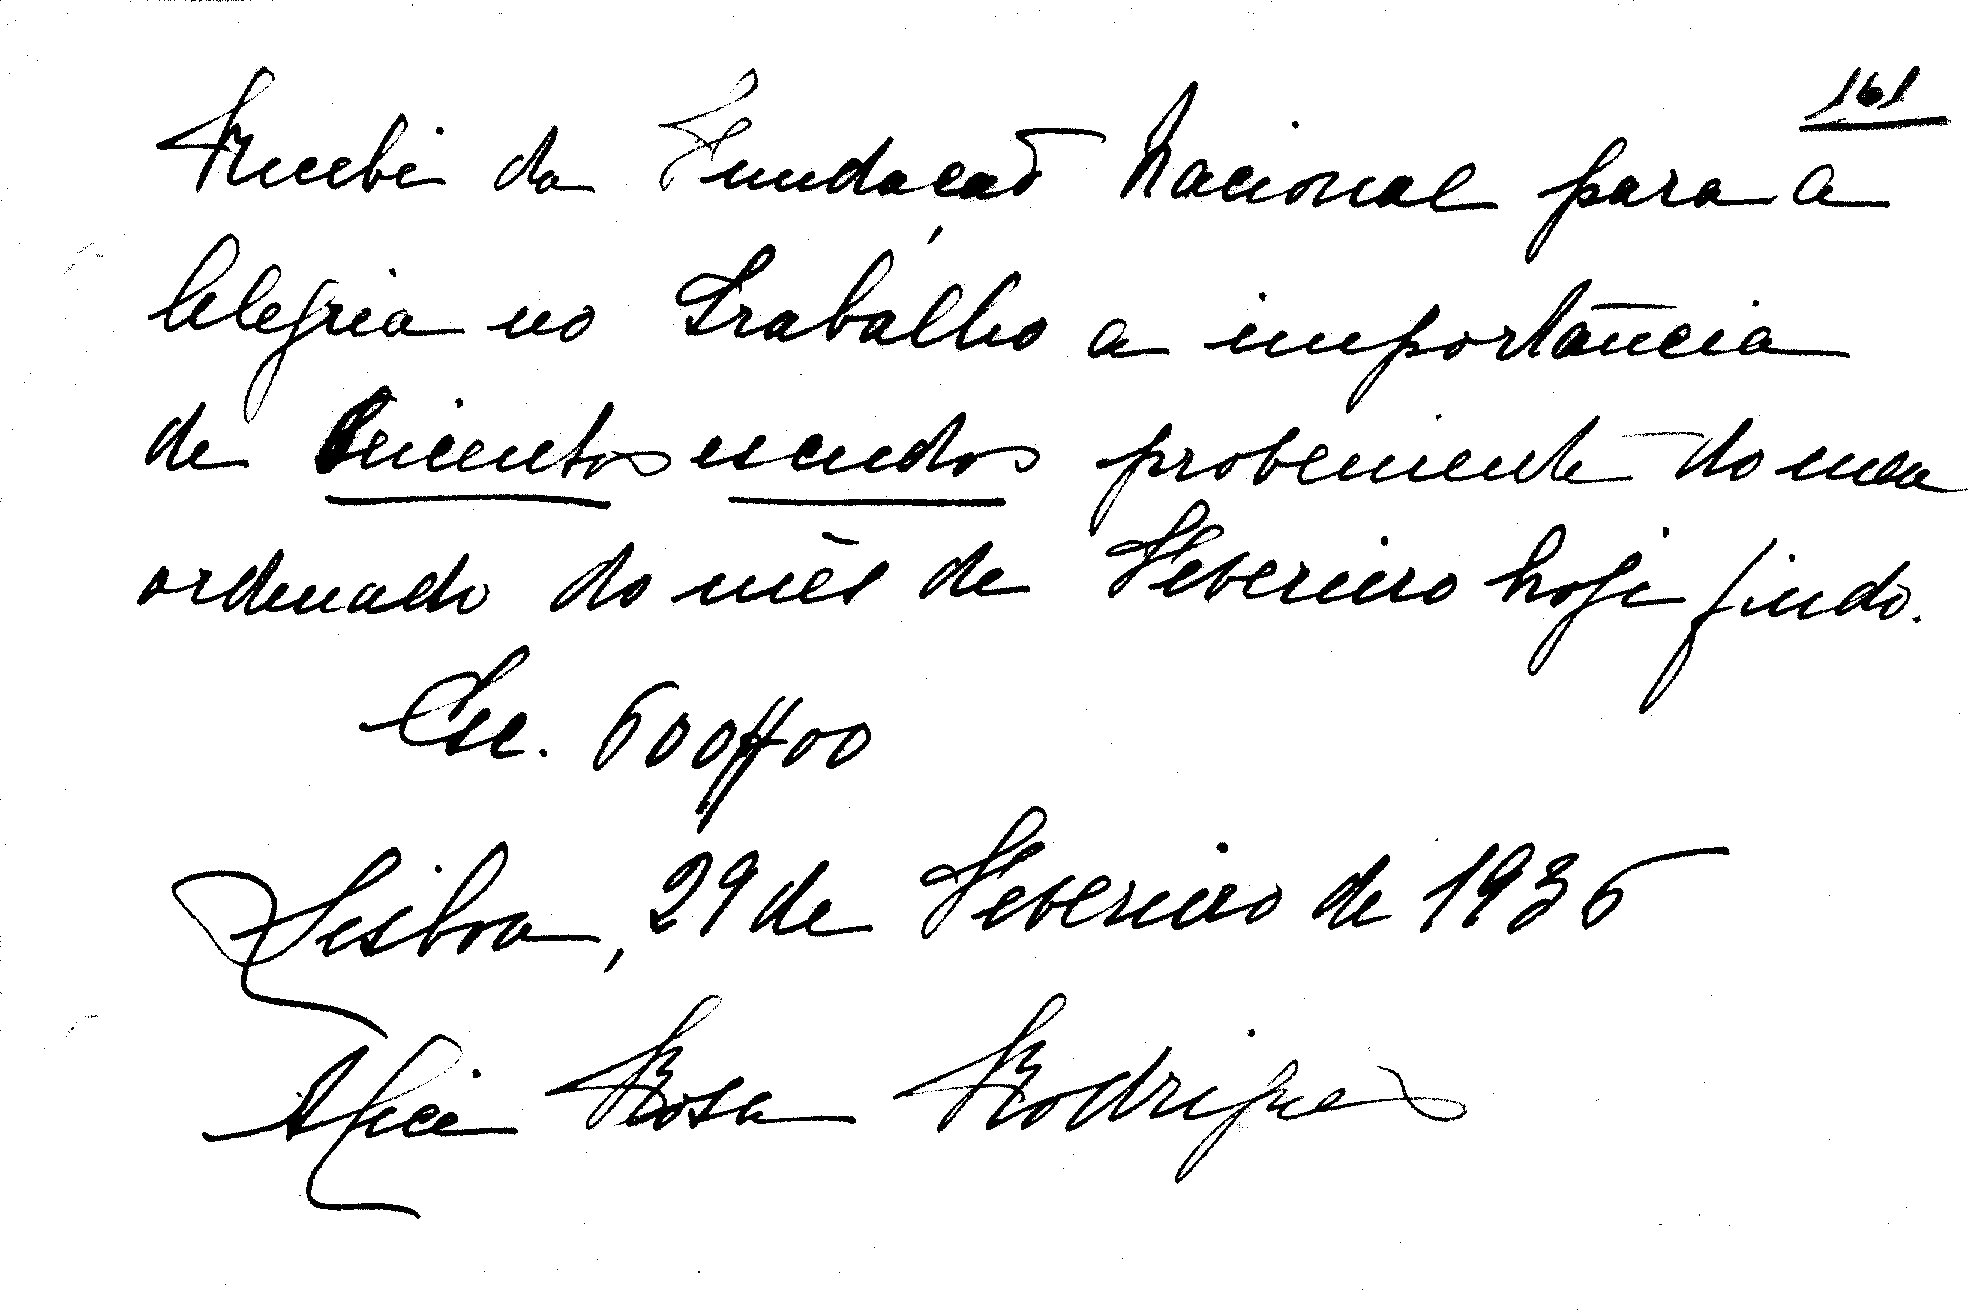 161
Recebi da Fundação Nacional para a
Alegria no Trabalho a importância
de Seicentos escudos proveniente do meu
ordenado do mês de Fevereiro hoje findo.
Esc. 600$00
Lisboa, 29 de Fevereiro de 1936
Alice Rosa Rodrigues